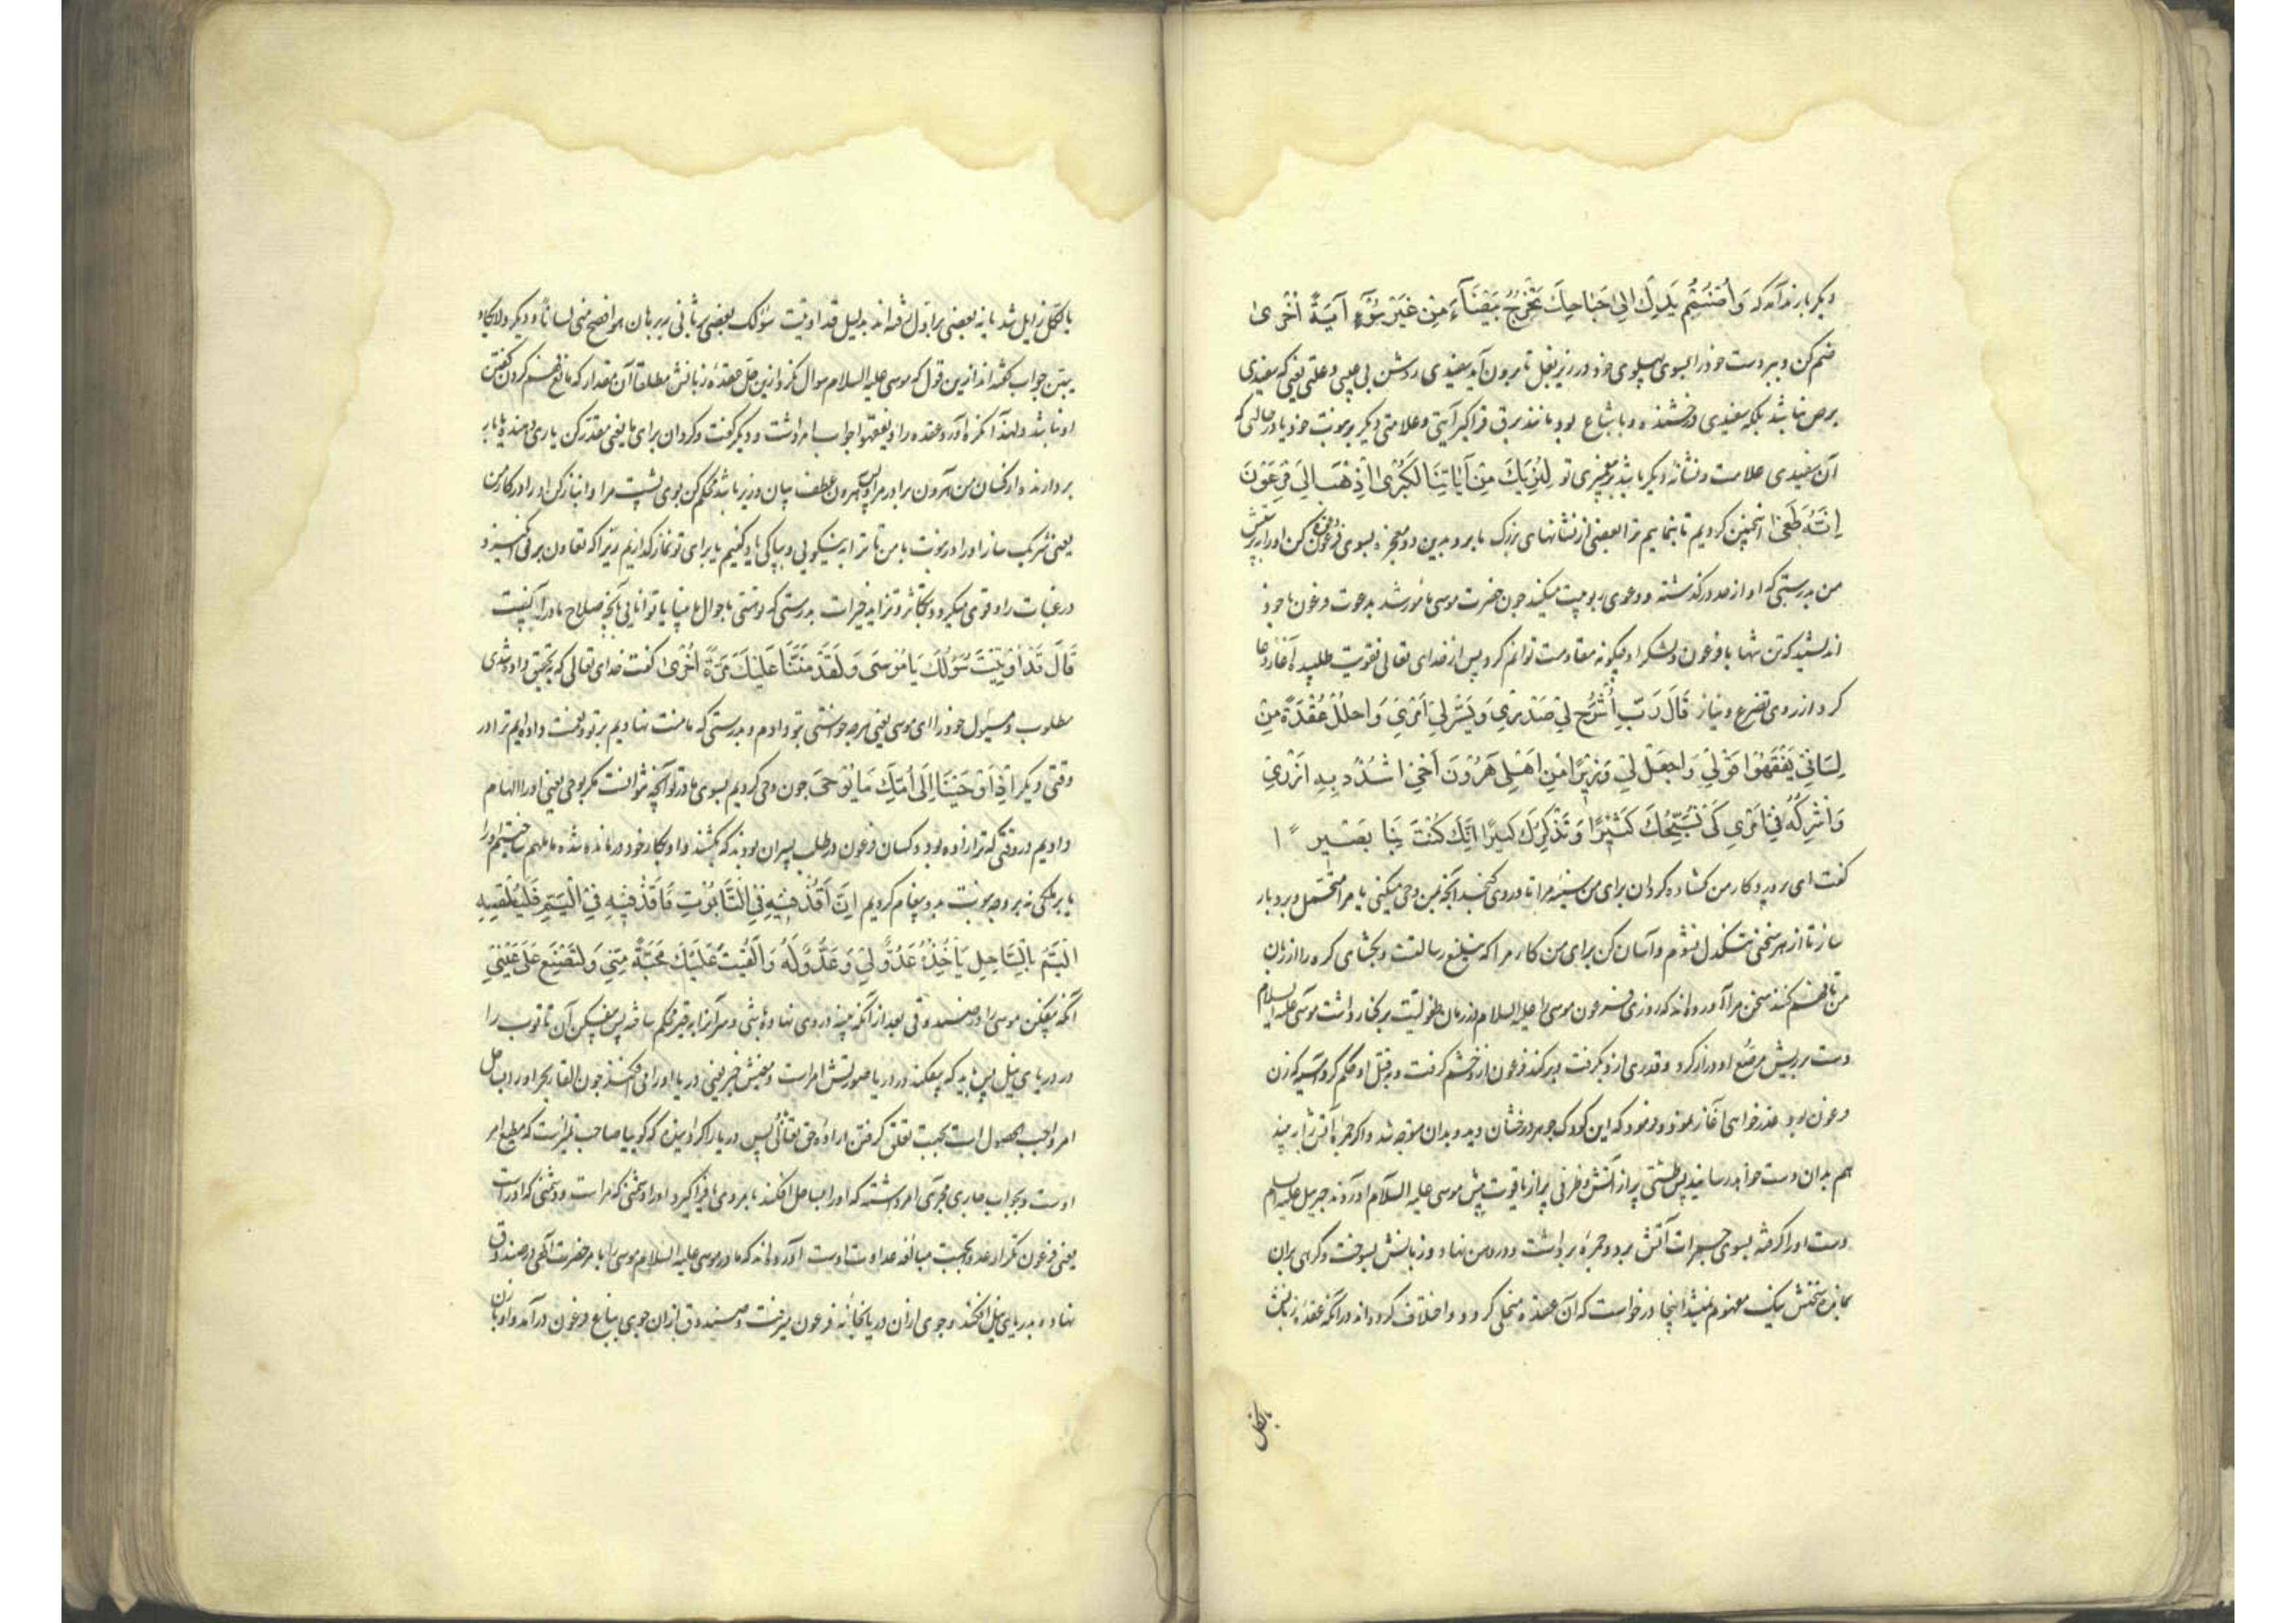 دیگر بار ندا آمد که وَاضْمُمْ یَدَكَ اِلیٰ جَنَاحِكَ تَخْرُجْ بَیْضَآءَ مِنْ غَیْرِ سُوٓءٍ آیَةً اُخْریٰ
ضم کن و ببر دست خود را بسوی پهلوی خود در زیر بغل تا بیرون آید سفیدی روشن بی عیبی و علتی یعنی که سفیدی
برص نباشد بلکه سفیدی درخشنده و با شعاع بود مانند برق فراگیر آیتی و علامتی دیگر بر نبوت خود یا در حالتی که
آن سفیدی علامت و نشانه دیگر باشد بر پیغمبری تو لِنُرِیَكَ مِنْ آیَاتِنَا الْكُبْریٰ اِذْهَبْ اِلیٰ فِرْعَوْنَ
اِنَّهُ طَغیٰ اینچنین کردیم تا بنماییم ترا بعضی از نشانهای بزرگ ما برو بدین دو معجزه بسوی فرعون و دعوت کن او را بپرستش
من بدرستی که او از حد درگذشته و دعوی ربوبیت میکند چون حضرت موسی مامور شد بدعوت فرعون با خود
اندیشید که من تنها با فرعون و لشکر او چگونه مقاومت توانم کرد پس از خدای تعالی تقویت طلبید و آغاز دعا
کرد از روی تضرع و نیاز قَالَ رَبِّ اشْرَحْ لِی صَدْرِی وَیَسِّرْ لِی اَمْرِی وَاحْلُلْ عُقْدَةً مِنْ
لِسَانِی یَفْقَهُوا قَوْلِی وَاجْعَلْ لِی وَزِیْرًا مِنْ اَهْلِی هَرُوْنَ اَخِی اشْدُدْ بِهِ اَزْرِی
وَاَشْرِكْهُ فِی اَمْرِی كَیْ نُسَبِّحَكَ كَثِیْرًا وَنَذْكُرَكَ كَثِیرًا اِنَّكَ كُنْتَ بِنَا بَصِیْرًا
گفت ای پروردگار من گشاده گردان برای من سینه مرا تا در وی گنجد آنچه بمن وحی میکنی یا مرا متحمل و بردبار
ساز تا از هر سخنی تنگدل نشوم و آسان کن برای من کار مرا که تبلیغ رسالتست و بگشای گره را از زبان
من تا فهم کنند سخن مرا آورده‌اند که روزی فرعون موسی را علیه السلام در زمان طفولیت بر کنار داشت موسی علیه السلام
دست بریش مرصع او دراز کرد و قدری ازو بگرفت و برکند فرعون از خشم گرفت و بقتل او حکم کرد آسیه که زن
فرعون بود عذرخواهی آغاز نمود و فرمود که این کودک جوهر درخشان دید و بدان متوجه شد و اگر جمره آتش را به بیند
هم بدان دست خواهد رسانید پس طشتی پر از آتش و ظرفی پر از یاقوت پیش موسی علیه السلام آوردند جبریل علیه السلام
دست او را گرفته بسوی جمرات آتش برد و جمره برداشت و در دهن نهاد و زبانش بسوخت و گرهی بران
بماند و سخنش نیک مفهوم نمیشد اینجا درخواست که آن عقده منحل گردد و اختلاف کرده‌اند در آنکه عقده زبانش
بالکل
بالکل زایل شد یا نه بعضی بر اول رفته‌اند بدلیل قد اوتیت سؤلک بعضی بر ثانی ببرهان هو افصح منی لسانا و دیگر ولا یکاد
یبین جواب گفته‌اند ازین قول که موسی علیه السلام سوال نکرد ازین حل عقده زبانش مطلقا آن مقدار که مانع فهم کردن گفتن
او نباشد و لهذا نکره آورد عقده را و یفقهوا جواب امر داشت و دیگر گفت و گردان برای ما یعنی مقدر کن یاری دهنده تا بار
بردارند از کسان من هرون برادر مرا و هرون عطف بیان وزیر باشد محکم کن بوی پشت مرا و انباز کن او را در کار من
یعنی شریک ساز او را در نبوت با من تا ترا به نیکویی و پاکی یاد کنیم یا برای تو نماز گذاریم زیرا که تعاون
در رغبات راه قوی میگیرد و تکاثر و تزاید خیرات بدرستی که تو هستی باحوال ما بینا یا توانایی بآنچه صلاح ما درآنست
قَالَ قَدْ اُوْتِیْتَ سُؤْلَكَ یَا مُوْسَی وَلَقَدْ مَنَنَّا عَلَیْكَ مَرَّةً اُخْریٰ گفت خدای تعالی که بتحقیق داده شدی
مطلوب و مسئول خود را ای موسی یعنی هرچه خواستی بتو دادم و بدرستی که ما منت نهادیم بر تو و نعمت داده‌ایم ترا در
وقتی دیگر اِذْ اَوْحَیْنَا اِلَی اُمِّكَ مَا یُوْحَی چون وحی کردیم بسوی مادر تو آنچه نتوانست مگر بوحی یعنی او را الهام
دادیم در وقتی که ترا زاده بود و کسان فرعون در طلب پسران بودند که بکشند و او بکار خود درمانده شده ما ملهم ساختیم او را
یا بر ملکی نه بر وجه نبوت بدو پیغام کردیم اَنِ اقْذِفِیْهِ فِی التَّابُوْتِ فَاقْذِفِیْهِ فِی الْیَمِّ فَلْیُلْقِهِ
الْیَمُّ بِالسَّاحِلِ یَأْخُذْهُ عَدُوٌّ لِی وَعَدُوٌّ لَهُ وَاَلْقَیْتُ عَلَیْكَ مَحَبَّةً مِنِّی وَلِتُصْنَعَ عَلَی عَیْنِی
آنکه بیفکن موسی را در صندوقی بعد از آنکه پنبه در وی نهاده باشی و سر آنرا به قیر محکم ساخته پس بیفکن آن تابوت را
در دریای نیل پس باید که بیفکند در دریا صورتش امرست و معنیش خبر یعنی دریا او را می‌افکند چون القا بحر او را بساحل
امر واجب الحصول است بجهت تعلق گرفتن اراده حق تعالی پس دریا را گردانیده که گوییا صاحب تمیزست که مطیع امر
اوست و بجواب جاری مجری امر داشته که او را بساحل افکند بیرون تا فرا گیرد او را دشمنی که مراست و دشمنی که او راست
یعنی فرعون تکرار عدو بجهت مبالغه عداوت اوست آورده‌اند که مادر موسی علیه السلام موسی را بامر حضرت الهی در صندوق
نهاده بدریای نیل افکند و جوی ازان دریا بخانه فرعون میرفت و صندوق ازان جوی بباغ فرعون درآمد و او با زن